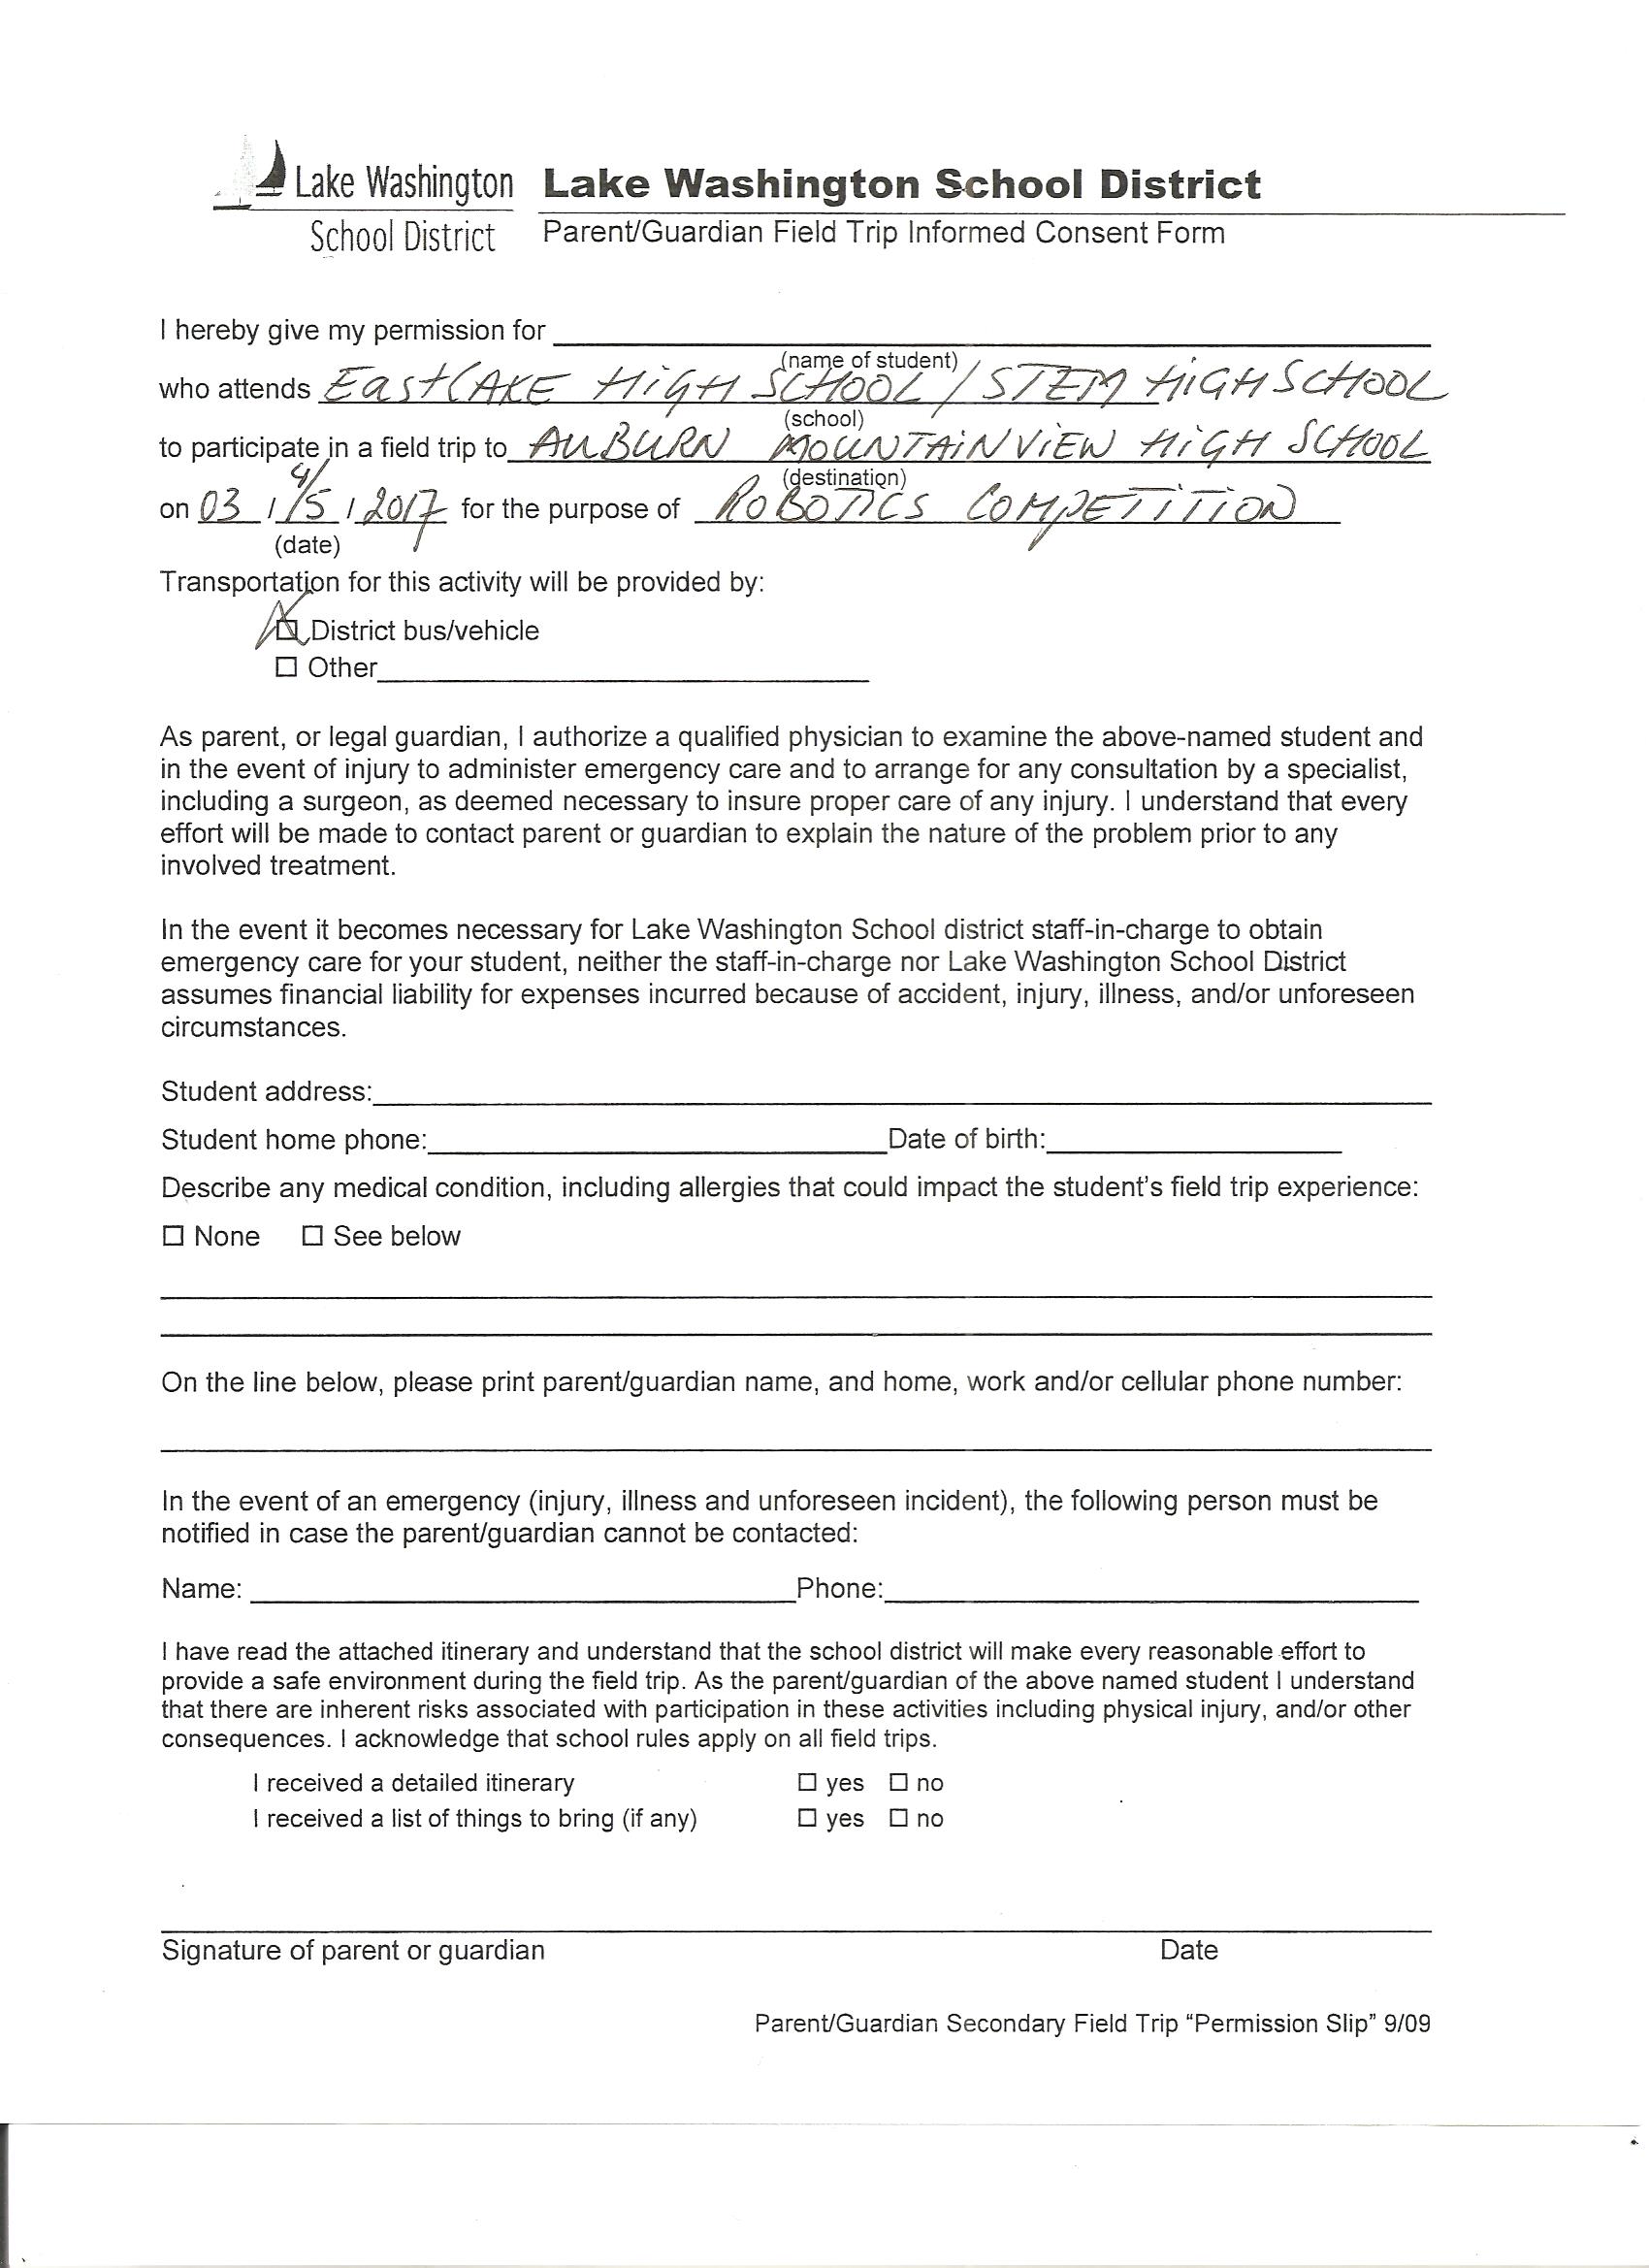 Lake Washington
School District
Lake Washington School District
Parent/Guardian Field Trip Informed Consent Form
I hereby give my permission for
(name of student)
who attends EastLAKE HiGH SCHOOL / STEM HiGH SCHOOL
(school)
to participate in a field trip to AUBURN MOUNTAiNViEW HiGH SCHOOL
(destination)
4/
on 03 / /5 / 2017 for the purpose of ROBOTICS COMPETiTiON
(date)
Transportation for this activity will be provided by:
☒ District bus/vehicle
☐ Other
As parent, or legal guardian, I authorize a qualified physician to examine the above-named student and
in the event of injury to administer emergency care and to arrange for any consultation by a specialist,
including a surgeon, as deemed necessary to insure proper care of any injury. I understand that every
effort will be made to contact parent or guardian to explain the nature of the problem prior to any
involved treatment.
In the event it becomes necessary for Lake Washington School district staff-in-charge to obtain
emergency care for your student, neither the staff-in-charge nor Lake Washington School District
assumes financial liability for expenses incurred because of accident, injury, illness, and/or unforeseen
circumstances.
Student address:
Student home phone: Date of birth:
Describe any medical condition, including allergies that could impact the student's field trip experience:
☐ None ☐ See below
On the line below, please print parent/guardian name, and home, work and/or cellular phone number:
In the event of an emergency (injury, illness and unforeseen incident), the following person must be
notified in case the parent/guardian cannot be contacted:
Name: Phone:
I have read the attached itinerary and understand that the school district will make every reasonable effort to
provide a safe environment during the field trip. As the parent/guardian of the above named student I understand
that there are inherent risks associated with participation in these activities including physical injury, and/or other
consequences. I acknowledge that school rules apply on all field trips.
I received a detailed itinerary ☐ yes ☐ no
I received a list of things to bring (if any) ☐ yes ☐ no
Signature of parent or guardian Date
Parent/Guardian Secondary Field Trip "Permission Slip" 9/09